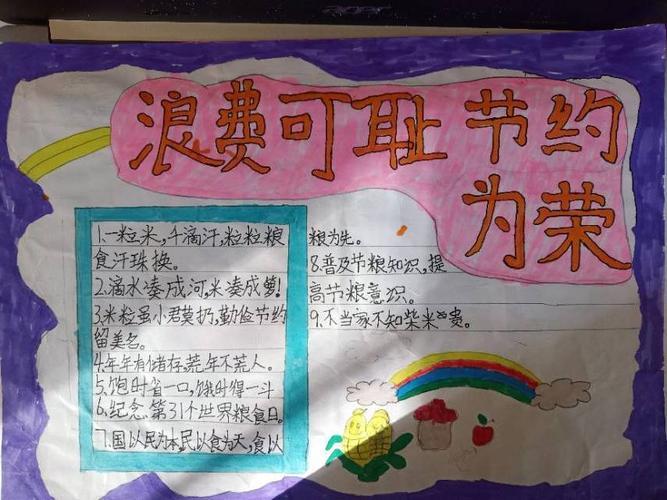 浪费可耻 节约
为荣
1.一粒米,千滴汗,粒粒粮
食汗珠换。
2.滴水凑成河,米凑成箩!
3.米粒虽小君莫扔,勤俭节约
留美名。
4.年年有储存,荒年不荒人。
5.饱时省一口,饿时得一斗
6.纪念第31个世界粮食日。
7.国以民为本,民以食为天,食以
粮为先。
8.普及节粮知识,提
高节粮意识。
9.不当家不知柴米贵。